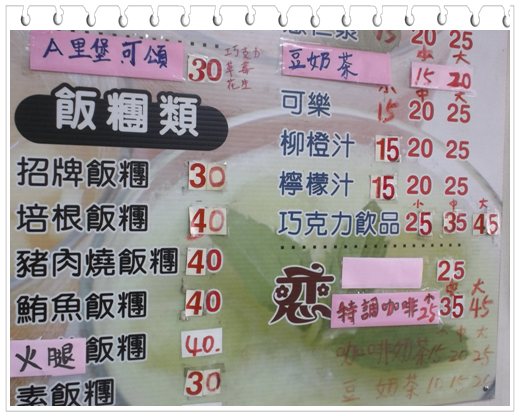 A里堡可頌 30 巧克力 草莓 花生
飯糰類
招牌飯糰 30
培根飯糰 40
豬肉燒飯糰 40
鮪魚飯糰 40
火腿飯糰 40.
素飯糰 30
15 20 25
豆奶茶 小15 中 大20
可樂 15 20 25
柳橙汁 15 20 25
檸檬汁 15 20 25
小 中 大
巧克力飲品 25 35 45
戀
25
中 大
特調咖啡 小25 35 45
中 大
咖啡奶茶 15 20 25
豆奶茶 10 15 20